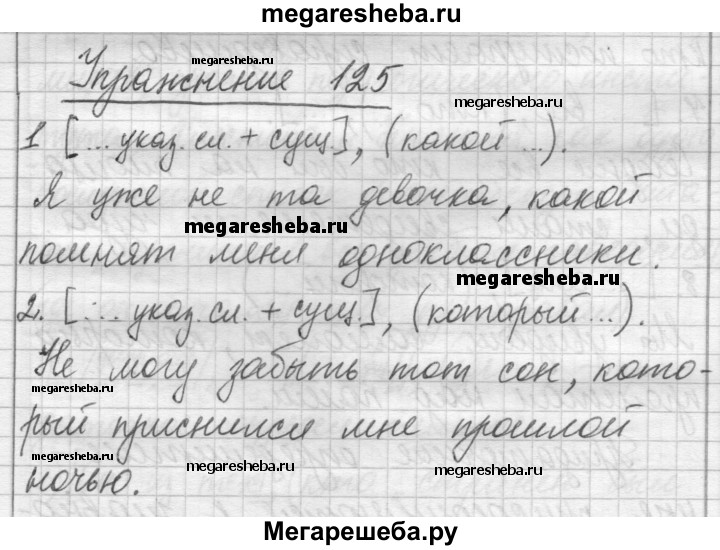 megaresheba.ru
megaresheba.ru
Упражнение 125
megaresheba.ru
1 [... указ. сл. + сущ.], (какой ...).
Я уже не та девочка, какой
megaresheba.ru
помнят меня одноклассники.
megaresheba.ru
2. [... указ. сл. + сущ.], (который ...).
Не могу забыть тот сон, кото-
megaresheba.ru
рый приснился мне прошлой
megaresheba.ru
megaresheba.ru
ночью.
Мегарешеба.ру